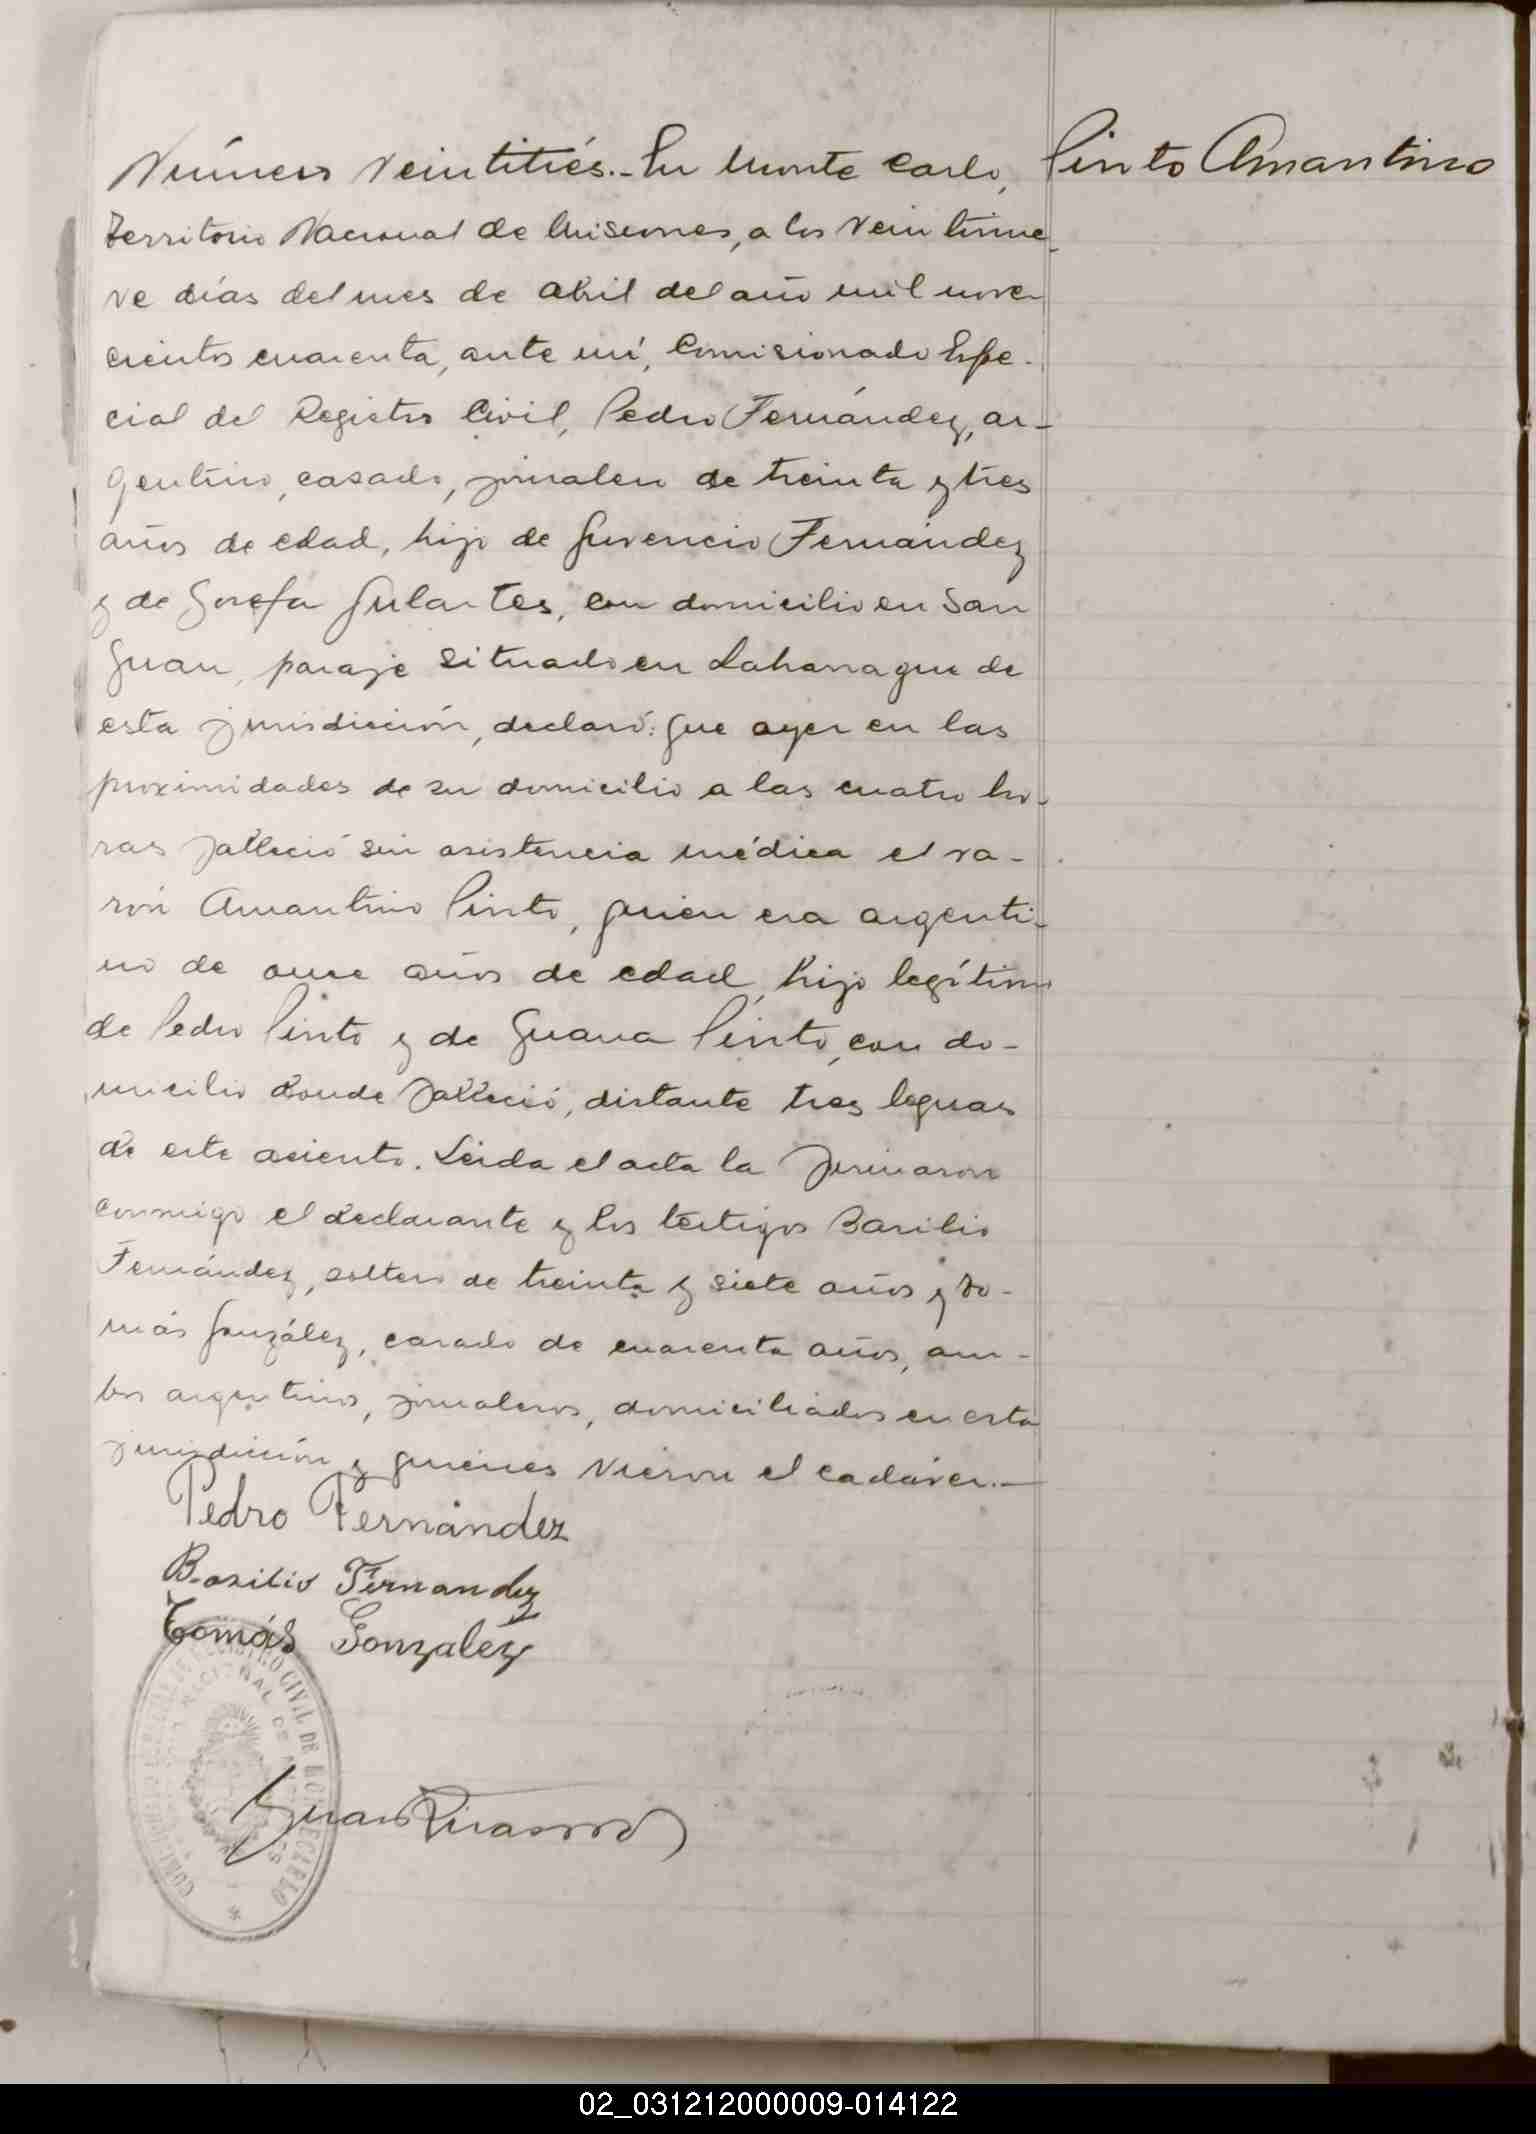 Número Veintitrés.- En Monte Carlo, Pinto Amantino
Territorio Nacional de Misiones, a los veintinue-
ve días del mes de abril del año mil nove-
cientos cuarenta, ante mí, Comisionado Espe-
cial del Registro Civil, Pedro Fernández, ar-
gentino, casado, jornalero de treinta y tres
años de edad, hijo de Juvencio Fernández
y de Josefa Gulartes, con domicilio en San
Juan, paraje situado en Laharrague de
esta jurisdicción, declaró: Que ayer en las
proximidades de su domicilio a las cuatro ho-
ras falleció sin asistencia médica el va-
rón Amantino Pinto, quien era argenti-
no de once años de edad, hijo legítimo
de Pedro Pinto y de Juana Pinto, con do-
micilio donde falleció, distante tres leguas
de este asiento. Leída el acta la firmaron
conmigo el declarante y los testigos Basilio
Fernández, soltero de treinta y siete años y To-
más González, casado de cuarenta años, am-
bos argentinos, jornaleros, domiciliados en esta
jurisdicción y quienes vieron el cadáver.-
Pedro Fernández
Basilio Fernandez
Tomás Gonzalez
REGISTRO CIVIL DE MONTECARLO
NACIONAL DE MISIONES
Juan
02_031212000009-014122